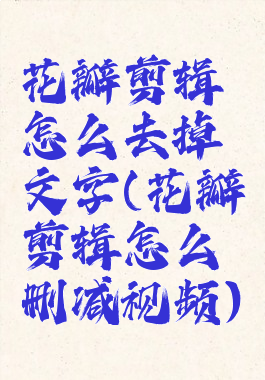 花瓣剪辑
怎么去掉
文字(花瓣
剪辑怎么
删减视频)